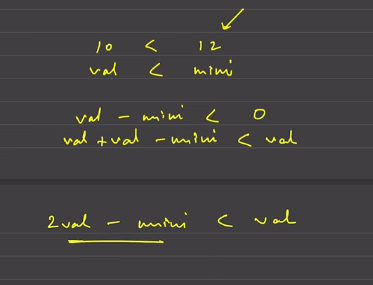 10 < 12
val < mini
val - mini < 0
val + val - mini < val
2val - mini < val